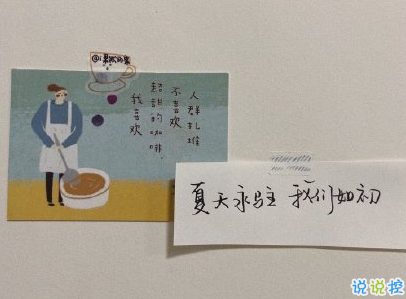 人群扎堆
不喜欢
超甜的咖啡.
我喜欢
夏天永驻 我们如初
说说控